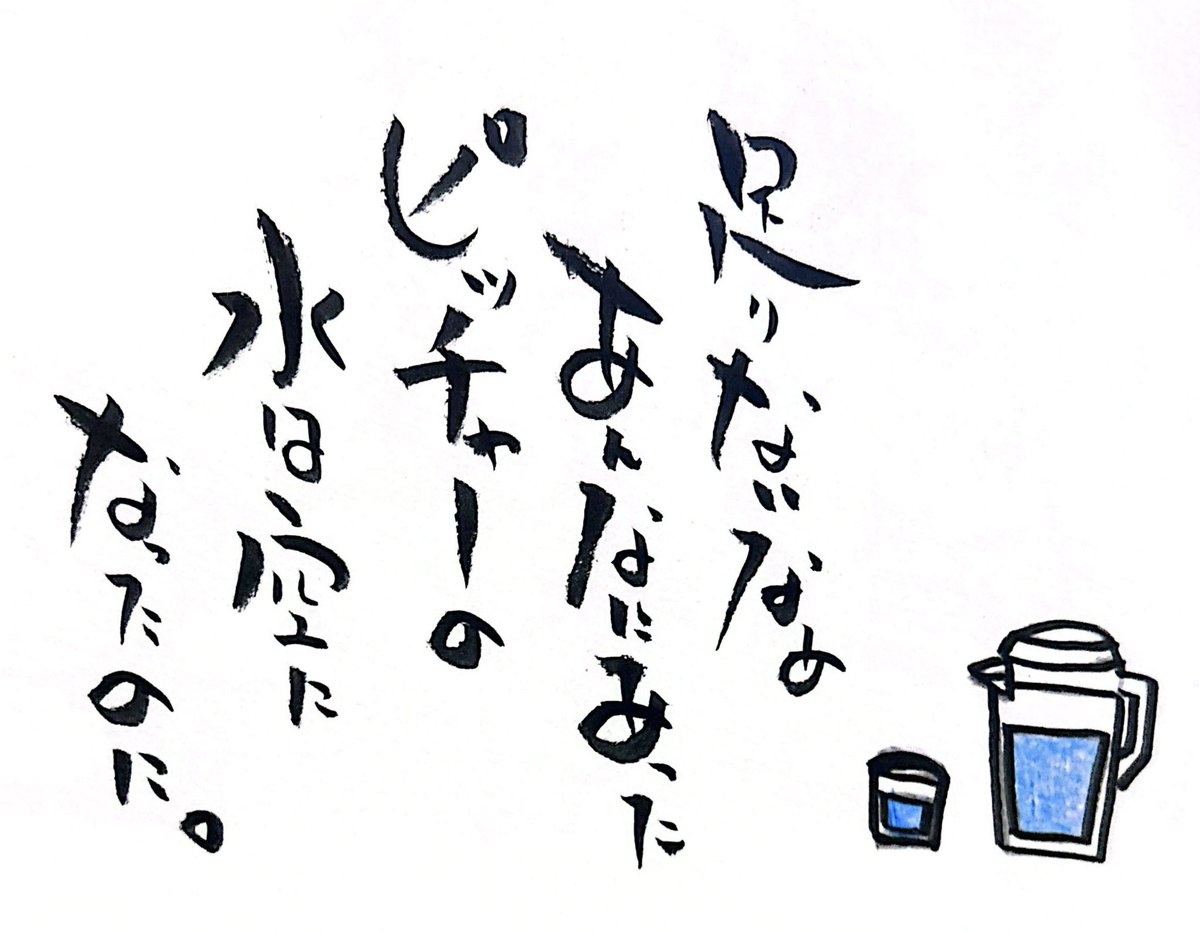 足りないなぁ
あんなにあった
ピッチャーの
水は空に
なったのに。